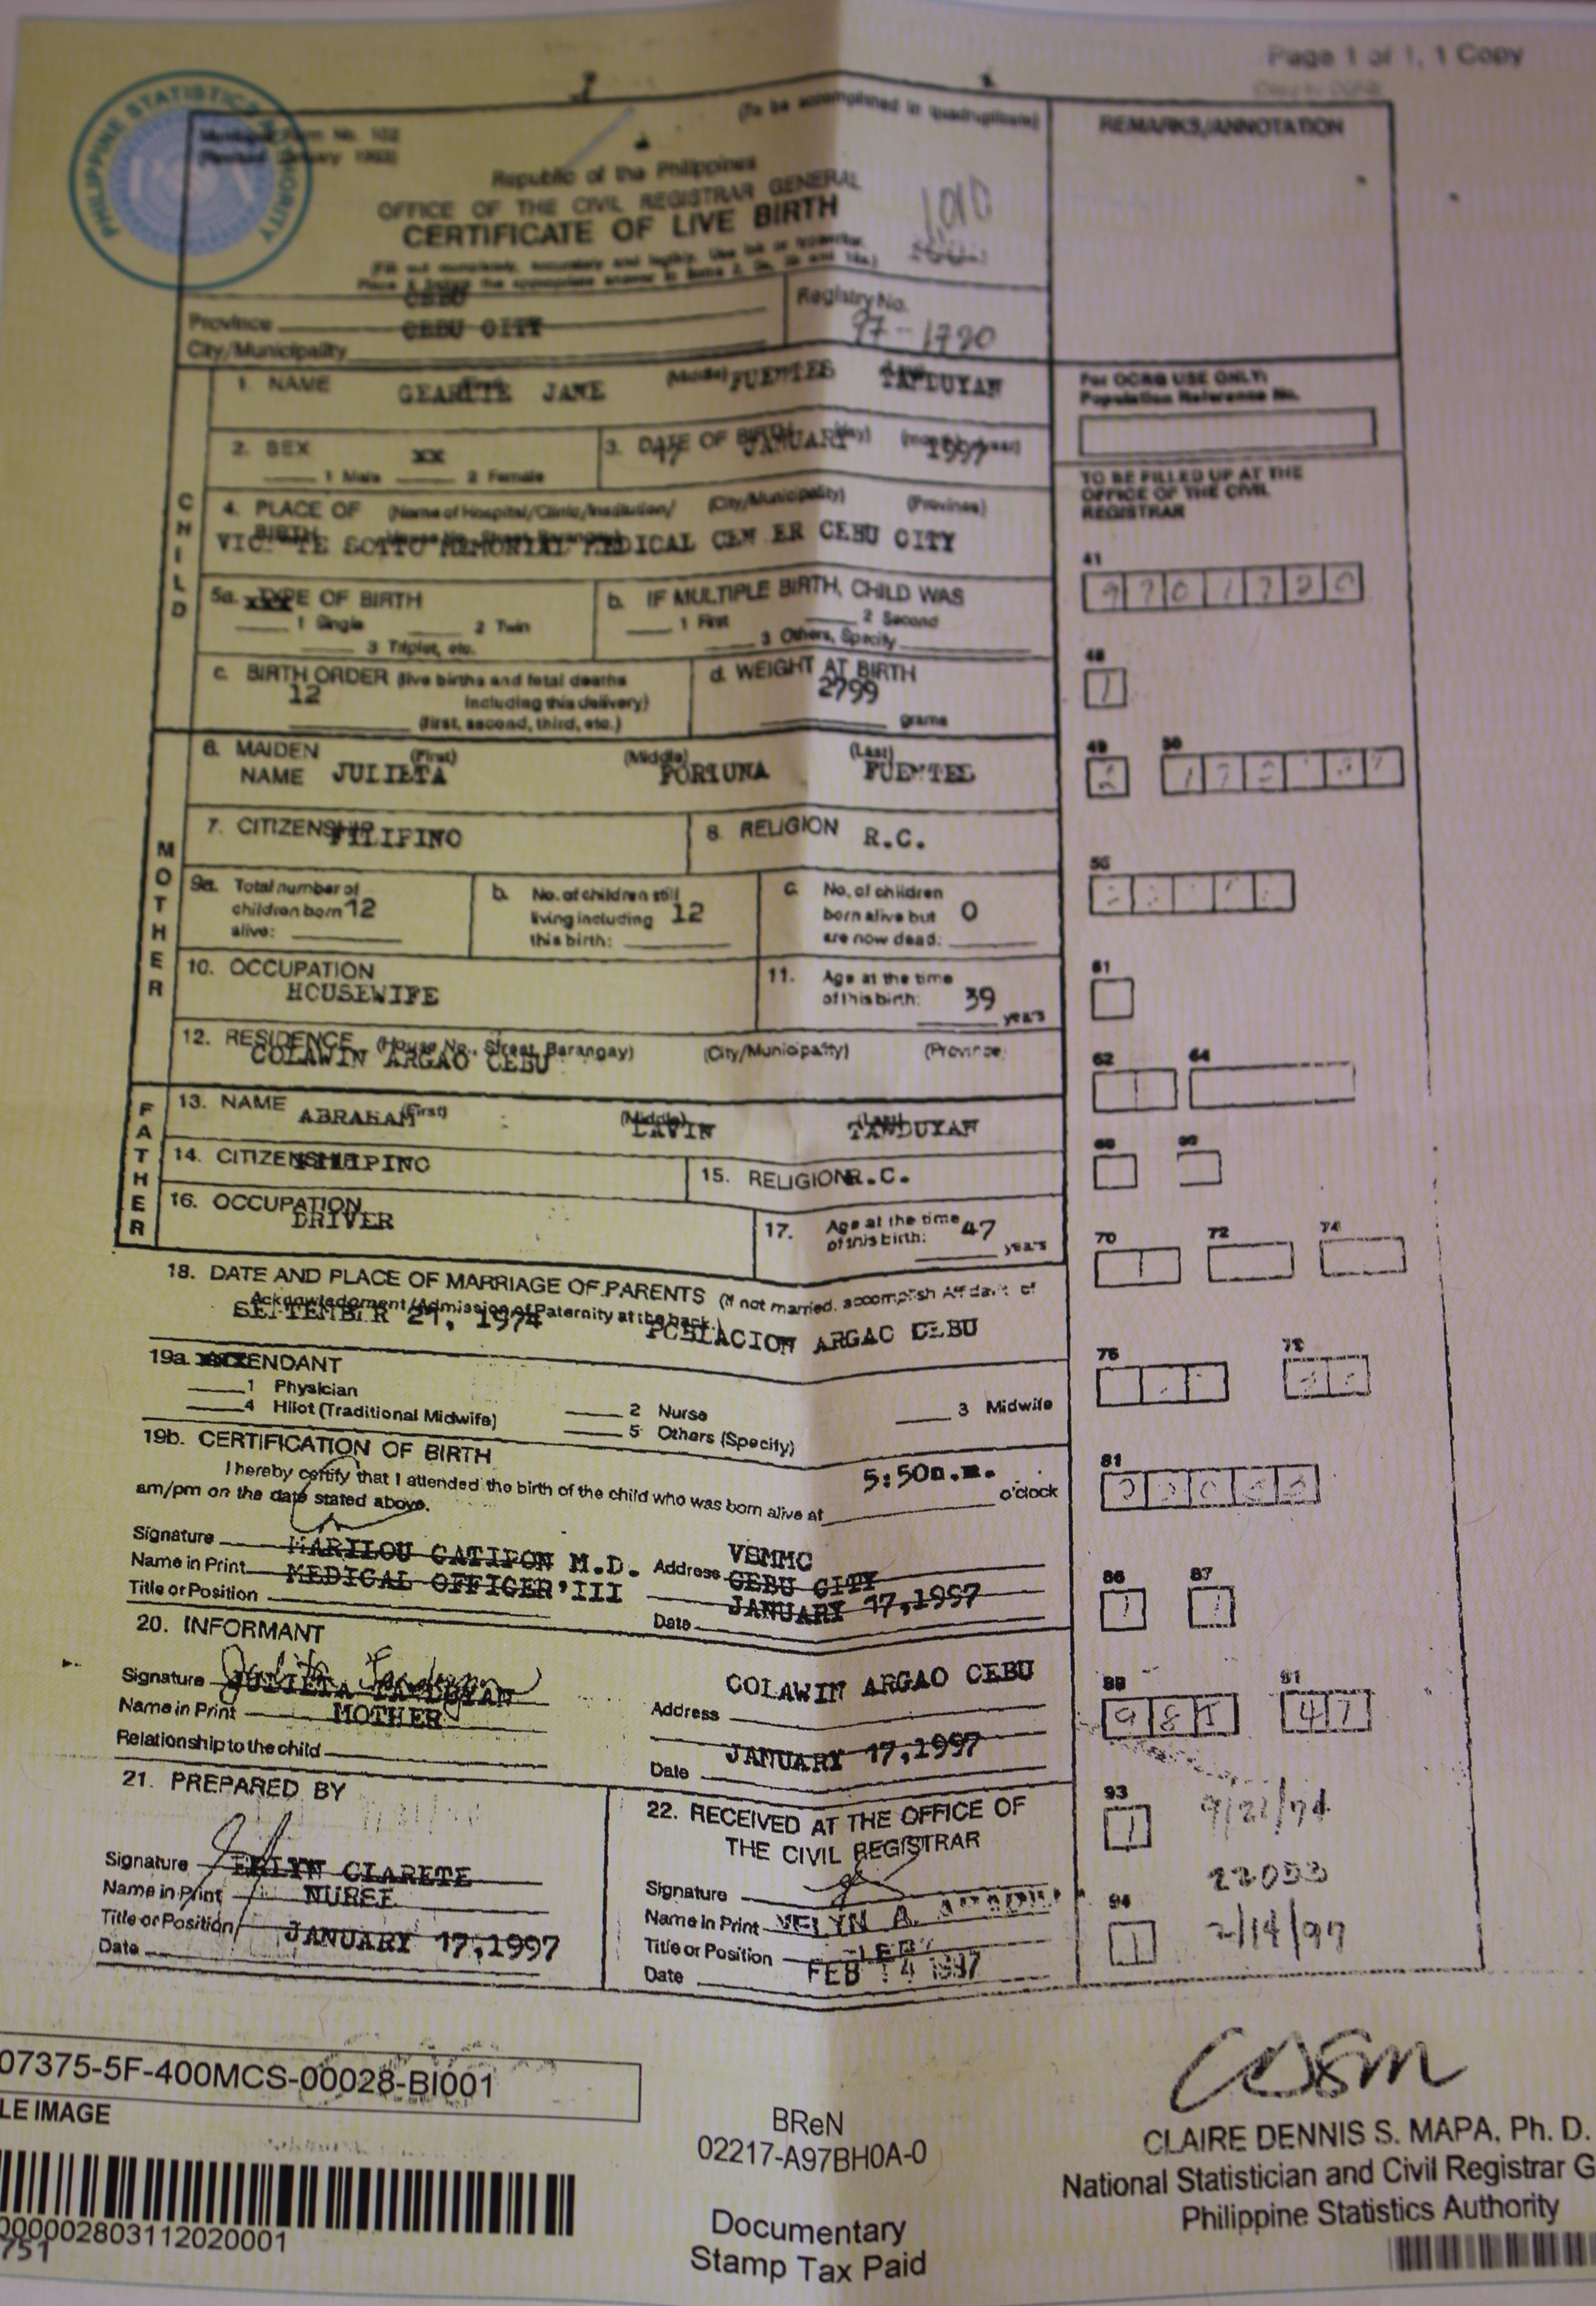 Page 1 of 1, 1 Copy
PHILIPPINE STATISTICS AUTHORITY
Municipal Form No. 102
(To be accomplished in quadruplicate)
REMARKS/ANNOTATION
(Revised January 1993)
Republic of the Philippines
OFFICE OF THE CIVIL REGISTRAR GENERAL
CERTIFICATE OF LIVE BIRTH
(Fill out completely, accurately and legibly. Use ink or typewriter.
Place X before the appropriate answer in items 2, 5a, 5b and 19a.)
Province CEBU
City/Municipality CEBU CITY
Registry No.
97-1720
CHILD
1. NAME GEARLTE JANE (Middle) FUENTES TANDUYAN
For OCRG USE ONLY:
Population Reference No.
2. SEX XX
1 Male 2 Female
3. DATE OF BIRTH (day) (month) (year)
17 JANUARY 1997
TO BE FILLED UP AT THE
OFFICE OF THE CIVIL
REGISTRAR
4. PLACE OF BIRTH (Name of Hospital/Clinic/Institution/ (City/Municipality) (Province)
House No., Street, Barangay)
VIC TE SOTTO MEMORIAL MEDICAL CEN ER CEBU CITY
5a. TYPE OF BIRTH
xxx
1 Single 2 Twin
3 Triplet, etc.
b. IF MULTIPLE BIRTH, CHILD WAS
1 First 2 Second
3 Others, Specify
41
9701720
c. BIRTH ORDER (live births and fetal deaths
12 including this delivery)
(first, second, third, etc.)
d. WEIGHT AT BIRTH
2799
grams
48
1
MOTHER
6. MAIDEN (First) (Middle) (Last)
NAME JULIETA FORTUNA FUENTES
49 50
2
7. CITIZENSHIP FILIPINO
8. RELIGION R.C.
9a. Total number of
children born 12
alive:
b. No. of children still
living including 12
this birth:
c. No. of children
born alive but 0
are now dead:
56
10. OCCUPATION
HOUSEWIFE
11. Age at the time
of this birth: 39
years
61
12. RESIDENCE (House No., Street, Barangay) (City/Municipality) (Province)
COLAWIN ARGAO CEBU
62 64
FATHER
13. NAME (First) (Middle) (Last)
ABRAHAM LAVIN TANDUYAN
14. CITIZENSHIP FILIPINO
15. RELIGION R.C.
16. OCCUPATION
DRIVER
17. Age at the time 47
of this birth:
years
70 72 74
18. DATE AND PLACE OF MARRIAGE OF PARENTS (If not married, accomplish Affidavit of
Acknowledgment/Admission of Paternity at the back.)
SEPTEMBER 21, 1974 POBLACION ARGAO CEBU
19a. ATTENDANT
1 Physician
2 Nurse
3 Midwife
4 Hilot (Traditional Midwife)
5 Others (Specify)
76
19b. CERTIFICATION OF BIRTH
I hereby certify that I attended the birth of the child who was born alive at 5:50a.m. o'clock
am/pm on the date stated above.
81
Signature
Name in Print MARILOU CATIPON M.D.
Title or Position MEDICAL OFFICER III
Address VSMMC
CEBU CITY
Date JANUARY 17,1997
86 87
1 1
20. INFORMANT
Signature
Name in Print JULIETA TANDUYAN
Relationship to the child MOTHER
Address COLAWIN ARGAO CEBU
Date JANUARY 17,1997
88 91
47
21. PREPARED BY
Signature
Name in Print ERLYN CLARETE
Title or Position NURSE
Date JANUARY 17,1997
22. RECEIVED AT THE OFFICE OF
THE CIVIL REGISTRAR
Signature
Name in Print VELYN A.
Title or Position
Date FEB 14 1997
93
1
9/21/74
22053
94
1
2/14/97
07375-5F-400MCS-00028-BI001
LE IMAGE
000002803112020001
751
BReN
02217-A97BH0A-0
Documentary
Stamp Tax Paid
CLAIRE DENNIS S. MAPA, Ph. D.
National Statistician and Civil Registrar G
Philippine Statistics Authority